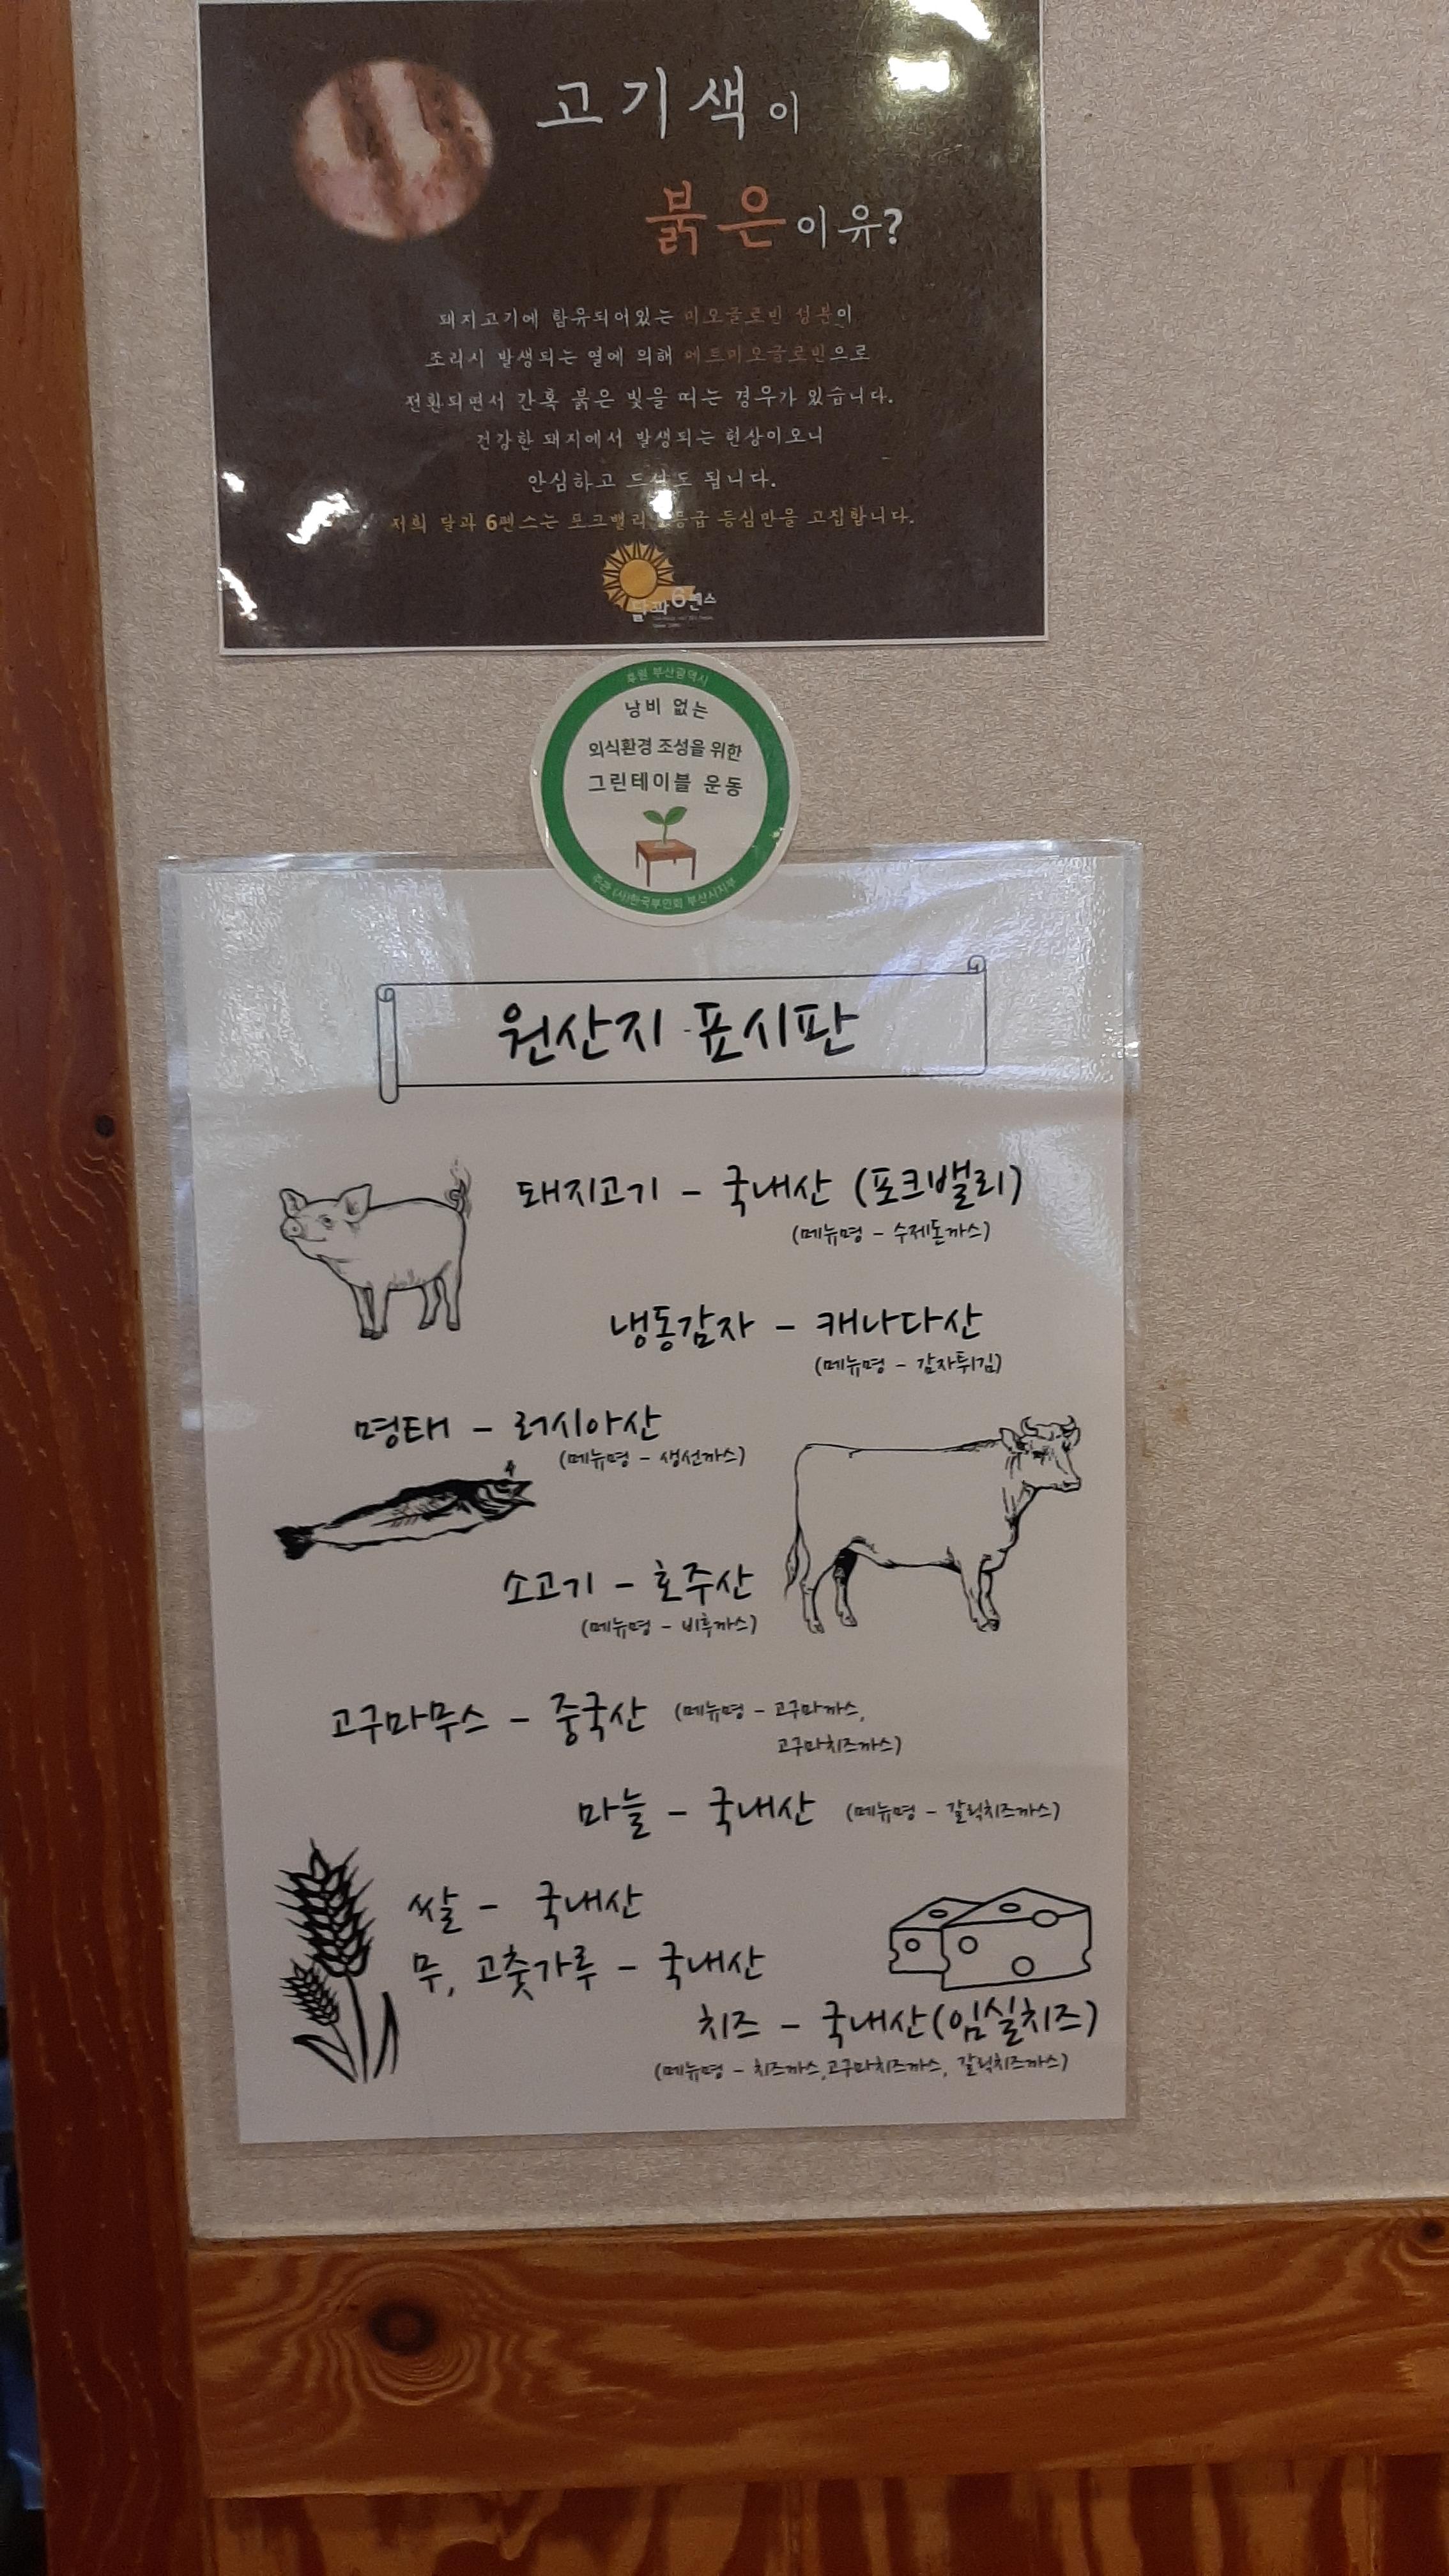 고기색이
붉은이유?
돼지고기에 함유되어있는 미오글로빈 성분이
조리시 발생되는 열에 의해 메트미오글로빈으로
전환되면서 간혹 붉은 빛을 띠는 경우가 있습니다.
건강한 돼지에서 발생되는 현상이오니
안심하고 드셔도 됩니다.
저희 달과 6펜스는 포크밸리 등심만을 고집합니다.
달과6펜스
후원 부산광역시
낭비 없는
외식환경 조성을 위한
그린테이블 운동
주관 (사)한국부인회 부산시지부
원산지 표시판
돼지고기 - 국내산 (포크밸리)
(메뉴명 - 수제돈까스)
냉동감자 - 캐나다산
(메뉴명 - 감자튀김)
명태 - 러시아산
(메뉴명 - 생선까스)
소고기 - 호주산
(메뉴명 - 비후까스)
고구마무스 - 중국산 (메뉴명 - 고구마까스,
고구마치즈까스)
마늘 - 국내산 (메뉴명 - 갈릭치즈까스)
쌀 - 국내산
무, 고춧가루 - 국내산
치즈 - 국내산(임실치즈)
(메뉴명 - 치즈까스,고구마치즈까스, 갈릭치즈까스)